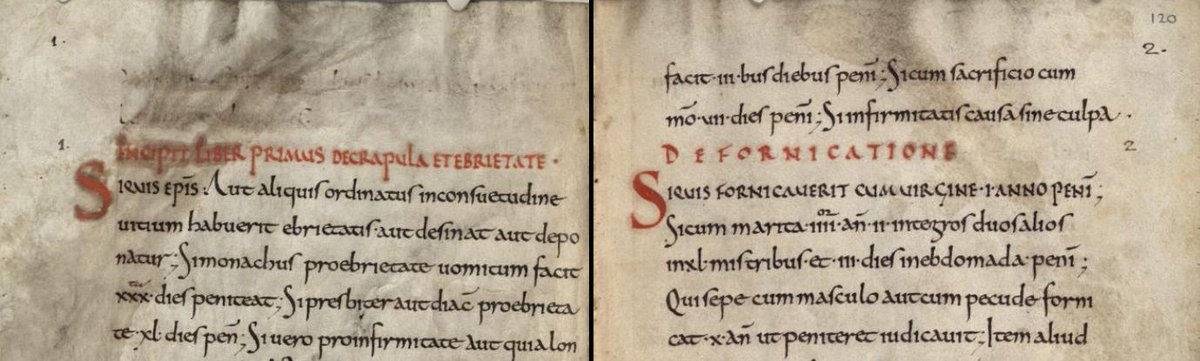 1.
1.
INCIPIT LIBER PRIMUS DE CRAPULA ET EBRIETATE ·
SIQUIS EPĪS. Aut aliquis ordinatus inconsuetudine
uitium habuerit ebrietatis · aut desinat aut depo
natur; Simonachus proebrietate uomitum facit
xxx · dies peniteat; Si presbiter aut diac̄ proebrieta
te · xl · dies peñ; Si uero proinfirmitate aut quia lon
120
2.
facit · iii · bus diebus penī; Sicum sacrificio cum
mō · uii · dies penī; Si infirmitatis causa sine culpa ·
2
DE FORNICATIONE
SIQUIS FORNICAUERIT CUM UIRGINE · I · ANNO PENĪ;
Sicum marita · iiii · añ · ii · integros duos alios
in xl · mis tribus · et · iii · dies in ebdomada · penī;
Qui sepe cum masculo aut cum pecude forni
cat · x · añ ut peniteret iudicauit; Item aliud